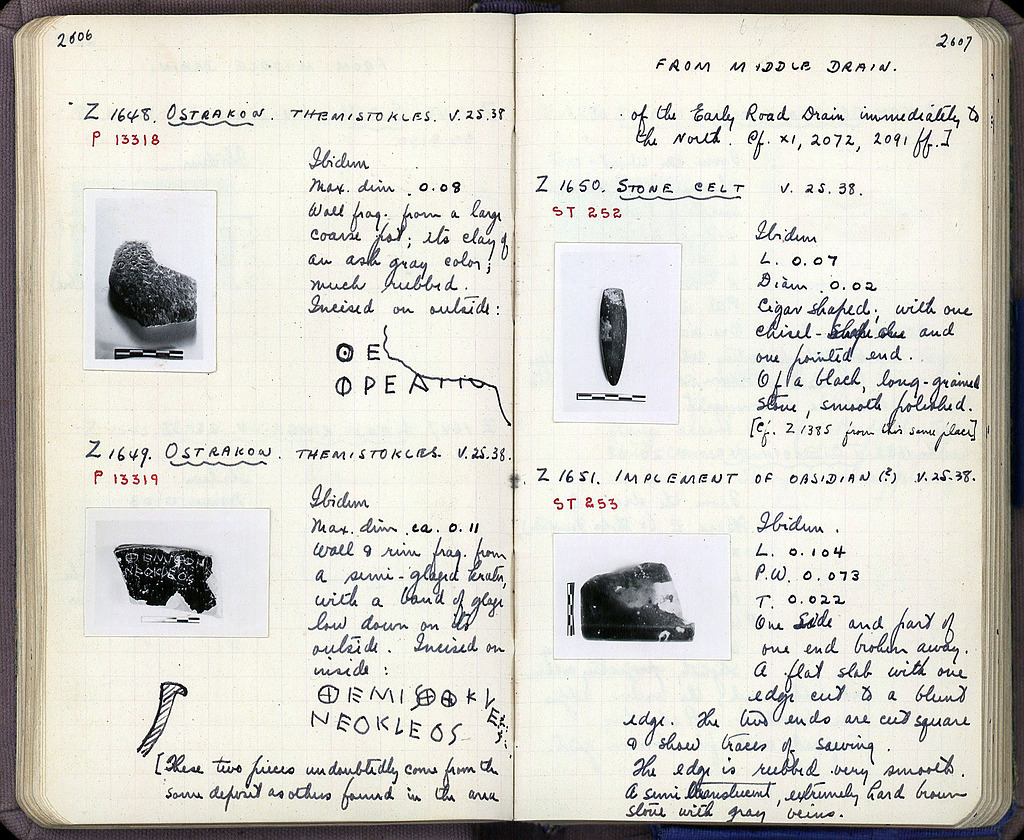 2606
Z 1648. OSTRAKON. THEMISTOKLES. V.25.38
P 13318
Ibidum
Max. dim. 0.08
Wall frag. from a large
coarse pot; its clay of
an ash gray color;
much rubbed.
Incised on outside:
ΘE
ΦPEAPPIO
Z 1649. OSTRAKON. THEMISTOKLES. V.25.38.
P 13319
Ibidum
Max. dim. ca. 0.11
Wall & rim frag. from
a semi-glazed krater,
with a band of glaze
low down on its
outside. Incised on
inside:
NEOKLEOS
[These two pieces undoubtedly come from the
same deposit as others found in the area
2607
FROM MIDDLE DRAIN.
of the Early Road Drain immediately to
the North. Cf. XI, 2072, 2091 ff.]
Z 1650. STONE CELT V. 25.38.
ST 252
Ibidum
L. 0.07
Diam. 0.02
Cigar shaped; with one
chisel- and
one pointed end.
Of a black, long-grained
stone, smooth polished.
[Cf. Z 1385 from this same place]
Z 1651. IMPLEMENT OF OBSIDIAN (?) V.25.38.
ST 253
Ibidum.
L. 0.104
P.W. 0.073
T. 0.022
One side and part of
one end broken away.
A flat slab with one
edge cut to a blunt
edge. The two ends are cut square
& show traces of sawing.
The edge is rubbed very smooth.
A semi translucent, extremely hard brown
stone with gray veins.